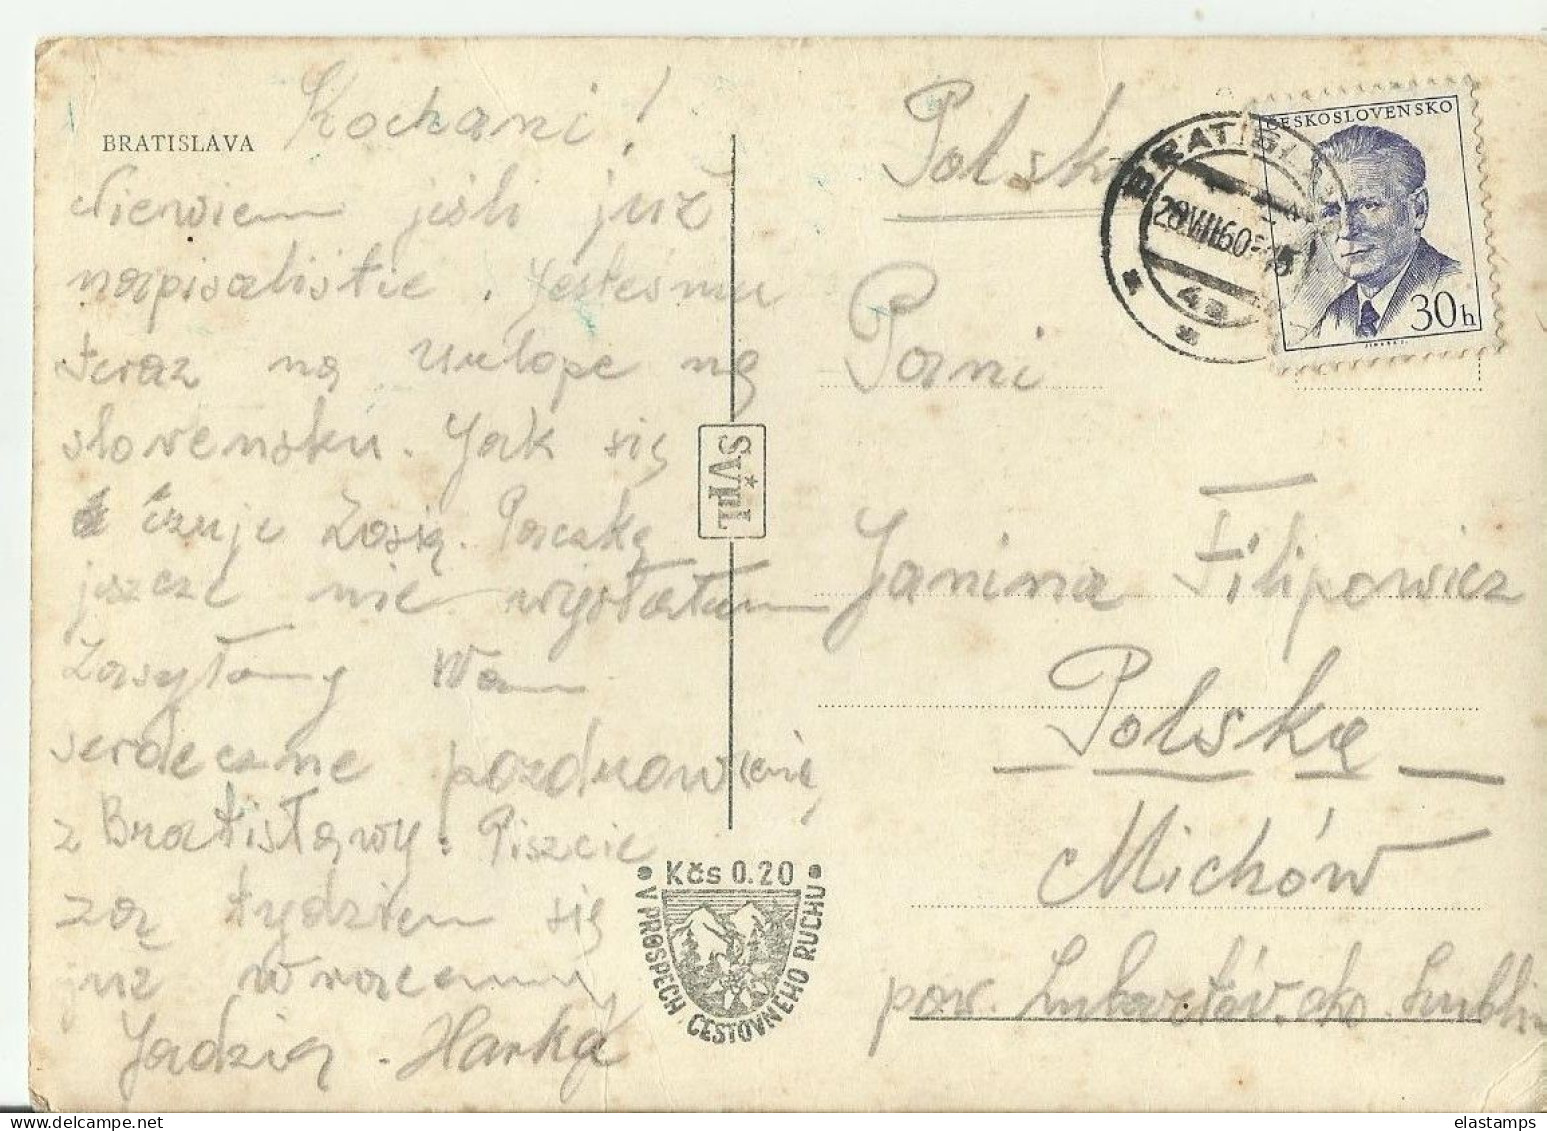 BRATISLAVA
Kochani!
Niewiem jesli już
napisaliście. Jesteśmy
teraz na urlopę na
slovensku. Jak się
czuje Zosią. Paczkę
jszcze nie wysłałam
Zasyłamy Wam
serdeczne pozdrowienią
z Bratisławy. Piszcie
zaą tydzień się
już wracamy
Jadzią. Hanką
SVTL
Kčs 0.20
V PROSPECH CESTOVNÉHO RUCHU
Polska
BRATISLAVA
28.VIII.60
4a
ČESKOSLOVENSKO
30h
Pani
Janina Filipowicz
Polskę
Michów
pow. Lubartów. ok. Lublin
elastamps